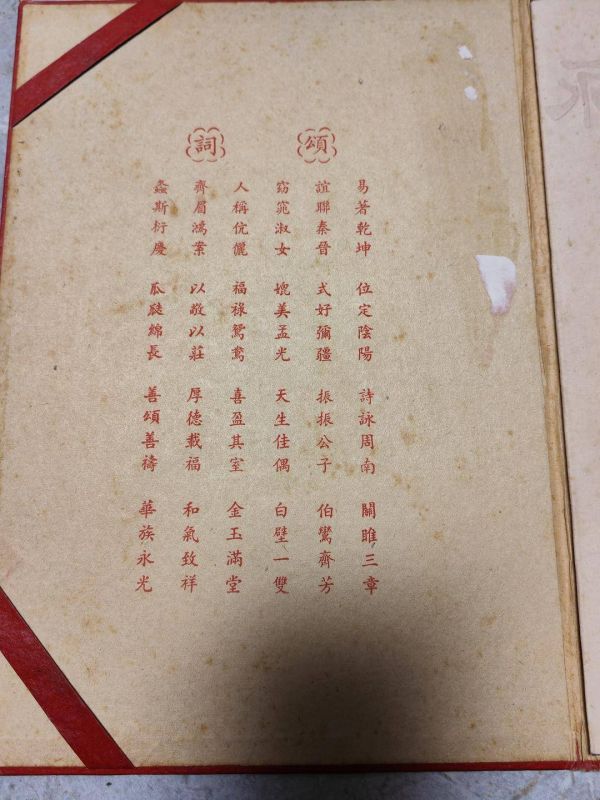 頌詞
易著乾坤 位定陰陽 詩詠周南 關雎三章
誼聯秦晉 式好彌疆 振振公子 伯鸞齊芳
窈窕淑女 媲美孟光 天生佳偶 白璧一雙
人稱伉儷 福祿鴛鴦 喜盈其室 金玉滿堂
齊眉鴻案 以敬以莊 厚德載福 和氣致祥
螽斯衍慶 瓜瓞綿長 善頌善禱 華族永光